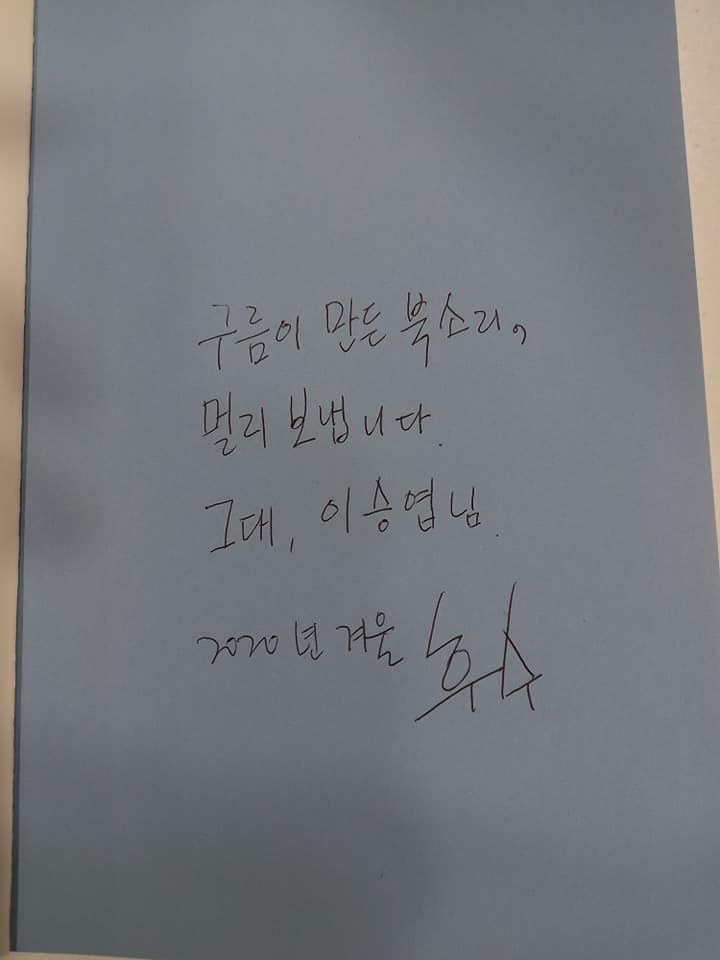 구름이 만든 북소리,
멀리 보냅니다.
그대, 이승엽님.
2020년 겨울